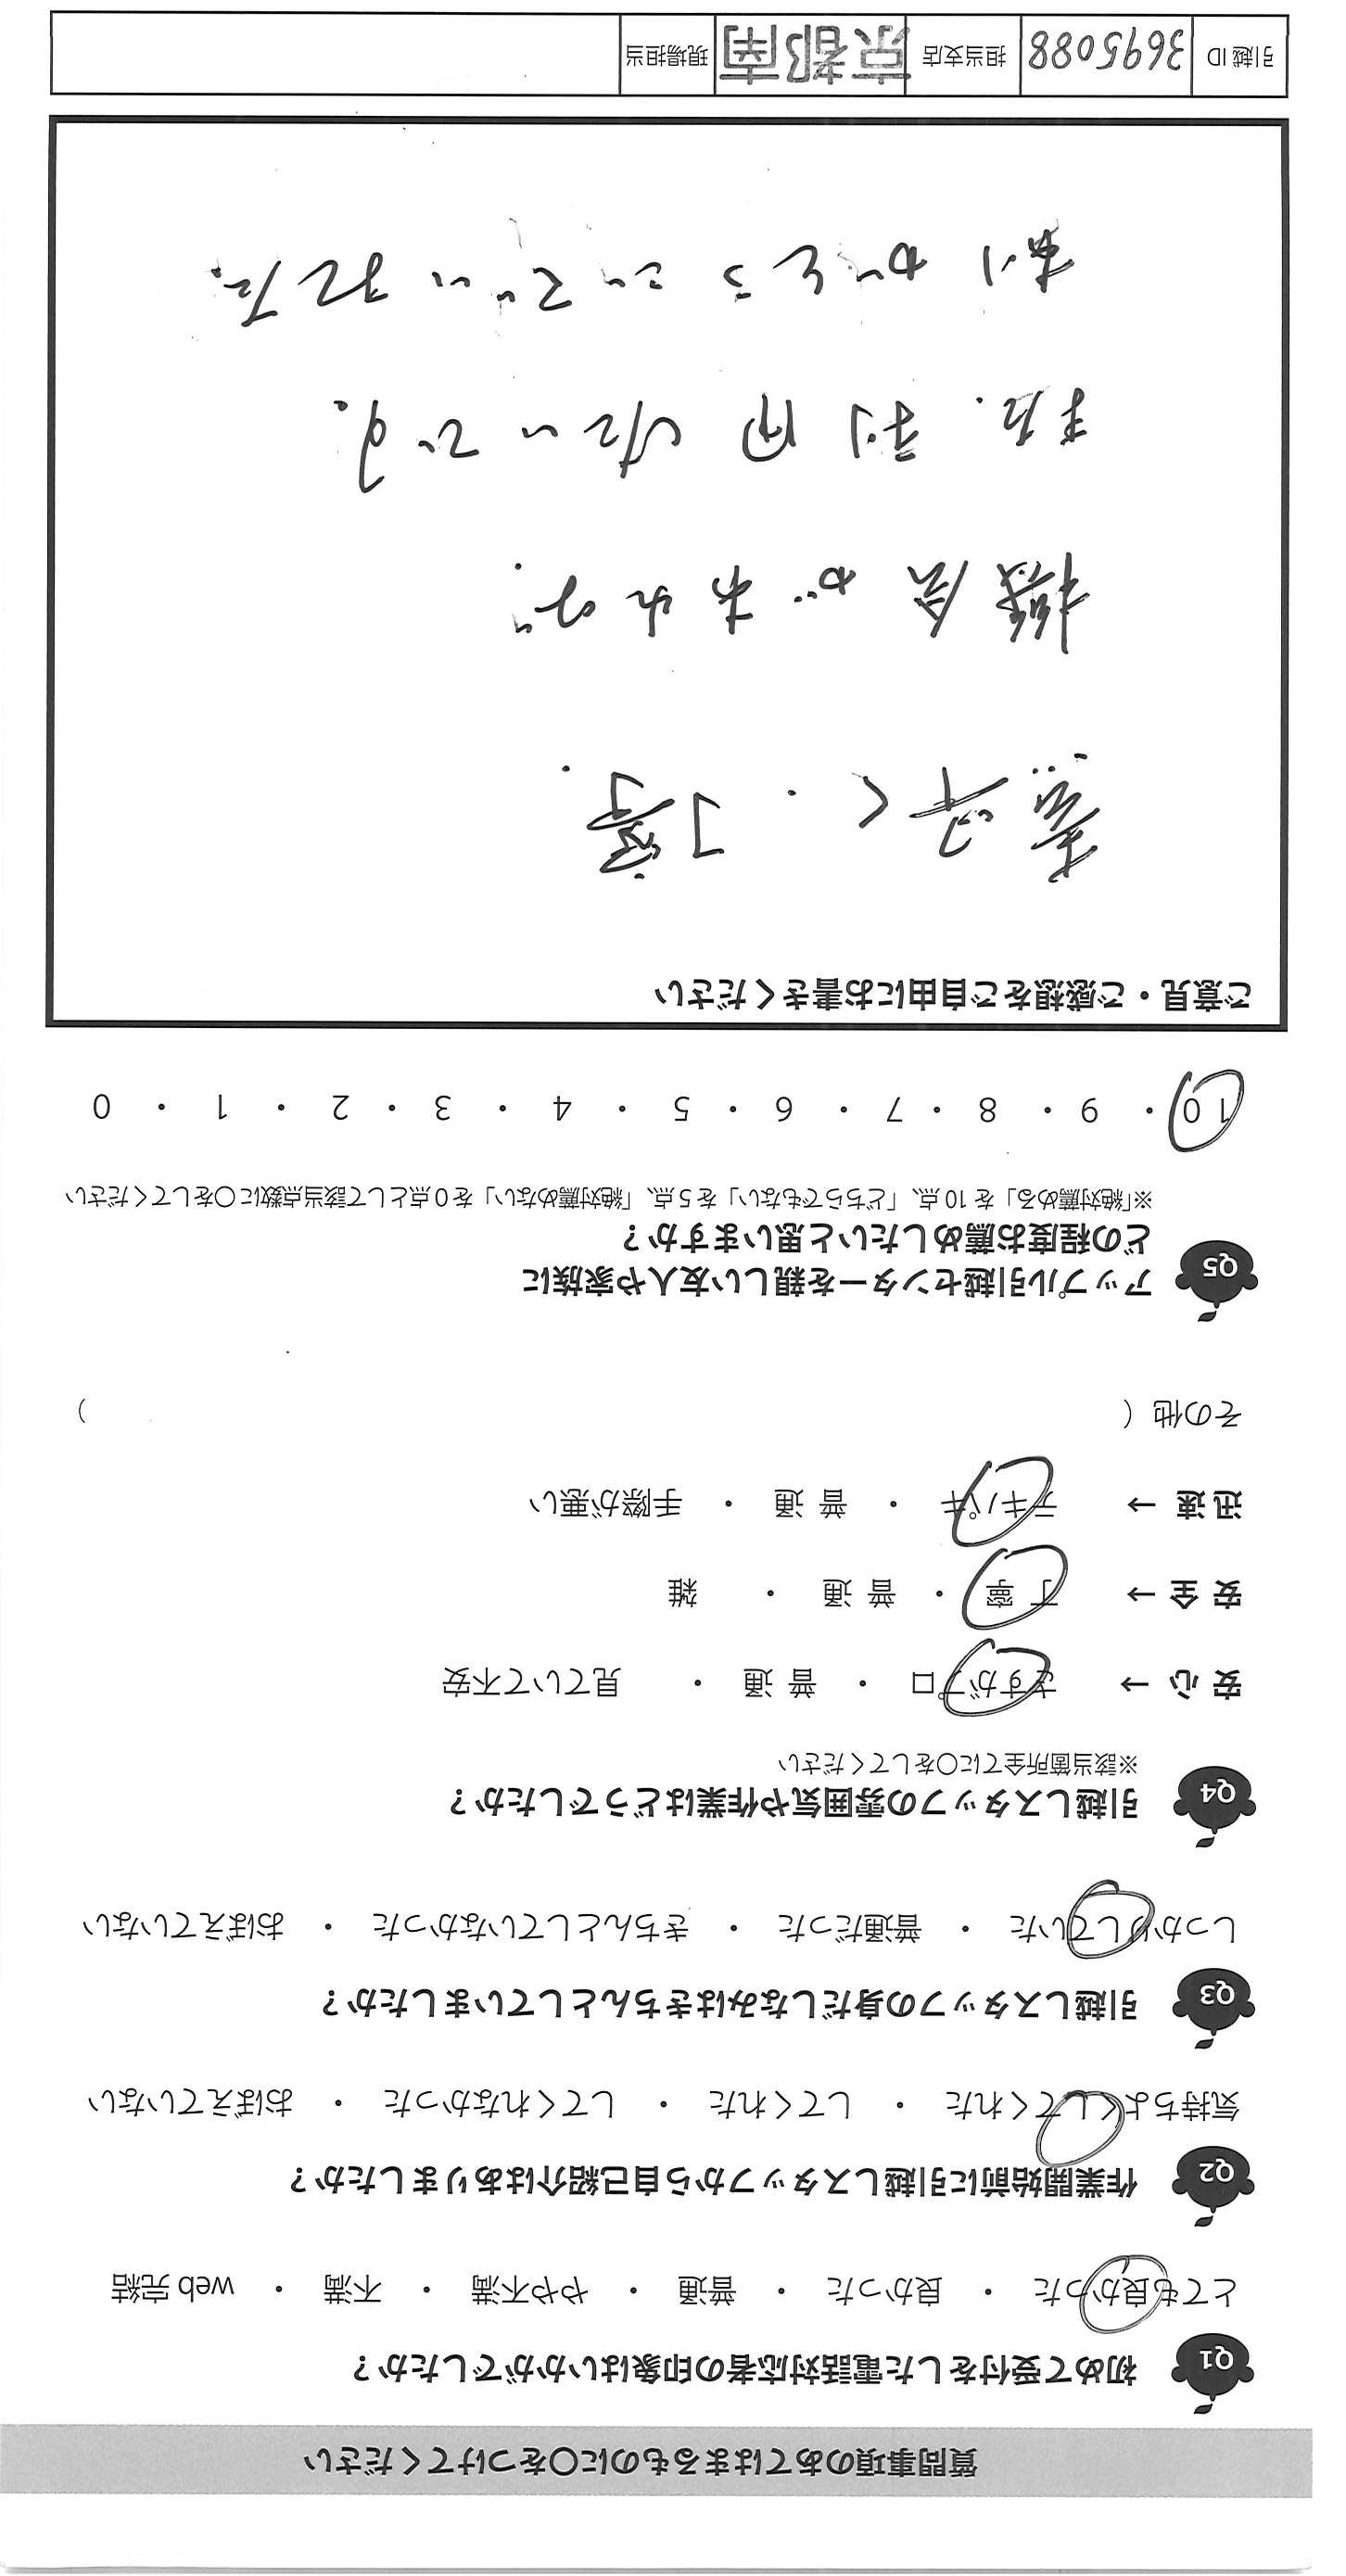 質問事項のあてはまるものに○をつけてください
Q1 初めて受付をした電話対応者の印象はいかがでしたか？
とても良かった ・ 良かった ・ 普通 ・ やや不満 ・ 不満 ・ web 完結
Q2 作業開始前に引越しスタッフから自己紹介はありましたか？
気持ちよくしてくれた ・ してくれた ・ してくれなかった ・ おぼえていない
Q3 引越しスタッフの身だしなみはきちんとしていましたか？
しっかりしていた ・ 普通だった ・ きちんとしていなかった ・ おぼえていない
Q4 引越しスタッフの雰囲気や作業はどうでしたか？
※該当箇所全てに○をしてください
安心 → さすがプロ ・ 普通 ・ 見ていて不安
安全 → 丁寧 ・ 普通 ・ 雑
迅速 → テキパキ ・ 普通 ・ 手際が悪い
その他（ ）
Q5 アップル引越センターを親しい友人や家族に
どの程度お薦めしたいと思いますか？
※「絶対薦める」を 10 点、「どちらでもない」を 5 点、「絶対薦めない」を 0 点として該当点数に○をしてください
10 ・ 9 ・ 8 ・ 7 ・ 6 ・ 5 ・ 4 ・ 3 ・ 2 ・ 1 ・ 0
ご意見・ご感想をご自由にお書きください
素早く、丁寧、
機会があれば、
また、利用したいです。
有りがとうございました。
引越 ID 3695088 担当支店 京都南 現場担当